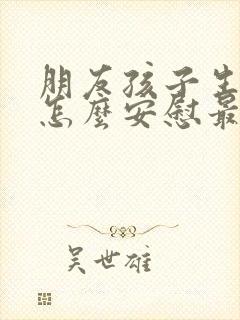 朋友孩子生
怎麼安慰最
吴世雄